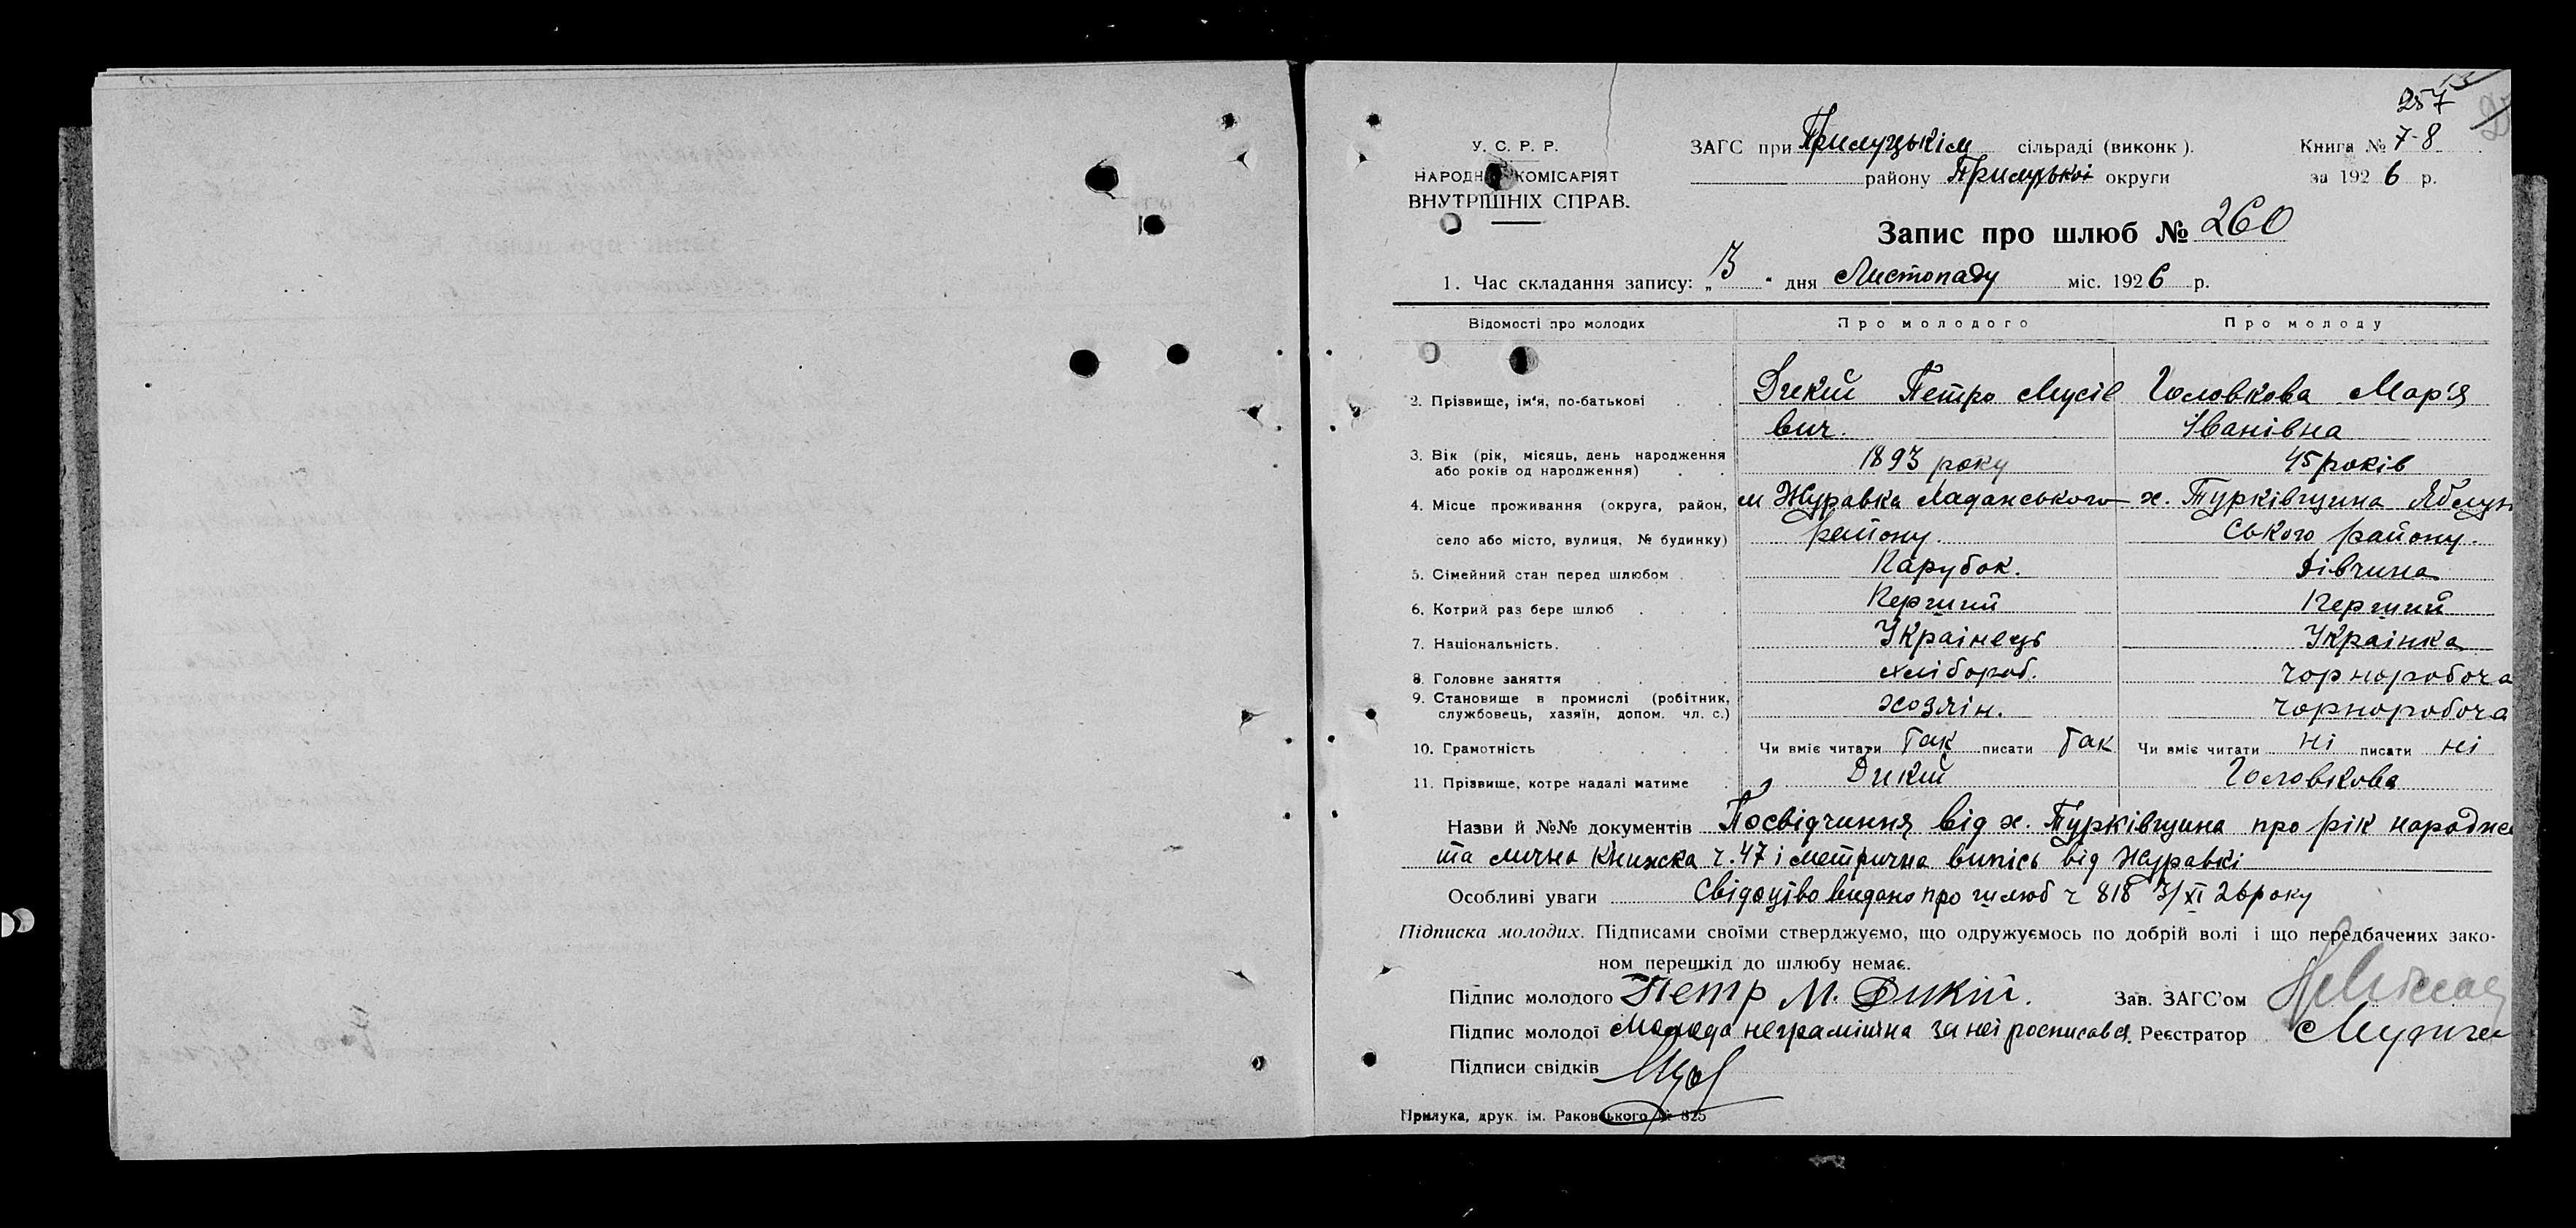 257
У. С. Р. Р. ЗАГС при Прилуцькім сільраді (виконк). Книга № 7-8
НАРОДНІЙ КОМІСАРІЯТ району Прилуцькоі округи за 1926 р.
ВНУТРІШНІХ СПРАВ.
Запис про шлюб № 260
1. Час складання запису: „3" дня Листопаду міс. 1926 р.
Відомості про молодих Про молодого Про молоду
2. Прізвище, ім'я, по-батькові Дикий Петро Мусіє Головкова Мар'я
вич. Іванівна
3. Вік (рік, місяць, день народження 1893 року 45 років
або років од народження)
4. Місце проживання (округа, район, м Журавка Ладанського х. Турківщина Яблун
село або місто, вулиця, № будинку) району. ського району.
5. Сімейний стан перед шлюбом Парубок. Дівчина
6. Котрий раз бере шлюб Перший Перший
7. Національність. Украінець Украінка
8. Головне заняття хлібороб. Чорноробоча
9. Становище в промислі (робітник, хозяін. Чорноробоча
службовець, хазяїн, допом. чл. с.)
10. Грамотність Чи вміє читати Так писати Так Чи вміє читати ні писати ні
11. Прізвище, котре надалі матиме Дикий Головкова
Назви й №№ документів Посвідчиння від х. Турківщина про рік народже
та лична книжка ч. 47 і метрична випісь від Журавкі
Особливі уваги Свідоцтво видано про шлюб ч 818 3/XI 26 року
Підписка молодих. Підписами своїми стверджуємо, що одружуємось по добрій волі і що передбачених зако-
ном перешкід до шлюбу немає.
Підпис молодого Петр М. Дикий. Зав. ЗАГС'ом
Підпис молодої Молода неграмітна за неі росписався. Реєстратор
Підписи свідків
Прилука, друк. ім. Раковського № 825